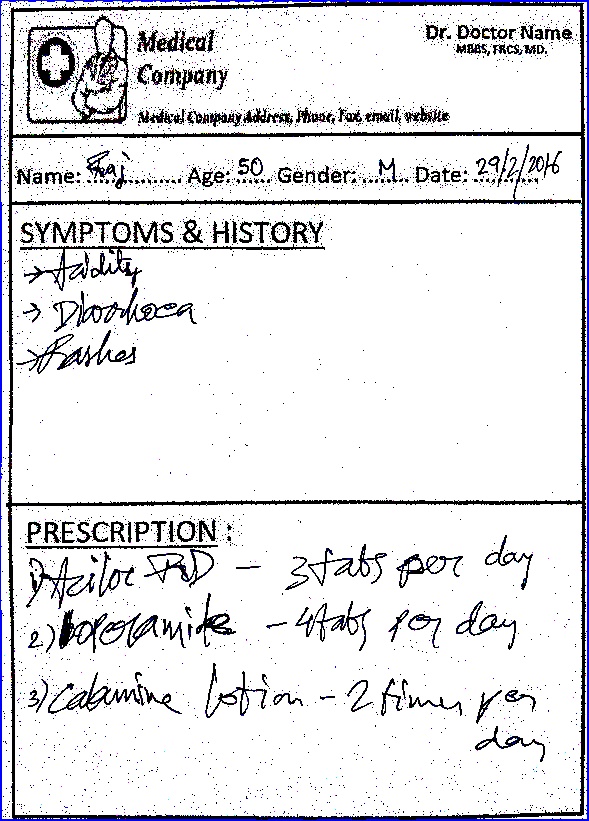 Medical
Company
Dr. Doctor Name
MBBS, FRCS, MD.
Medical Company Address, Phone, Fax, email, website
Name: Raj Age: 50 Gender: M Date: 29/2/2016
SYMPTOMS & HISTORY
→ Acidity
→ Diarrhoea
→ Rashes
PRESCRIPTION :
1) Aciloc RD - 3 tabs per day
2) Loperamide - 4 tabs per day
3) Calamine lotion - 2 times per
day